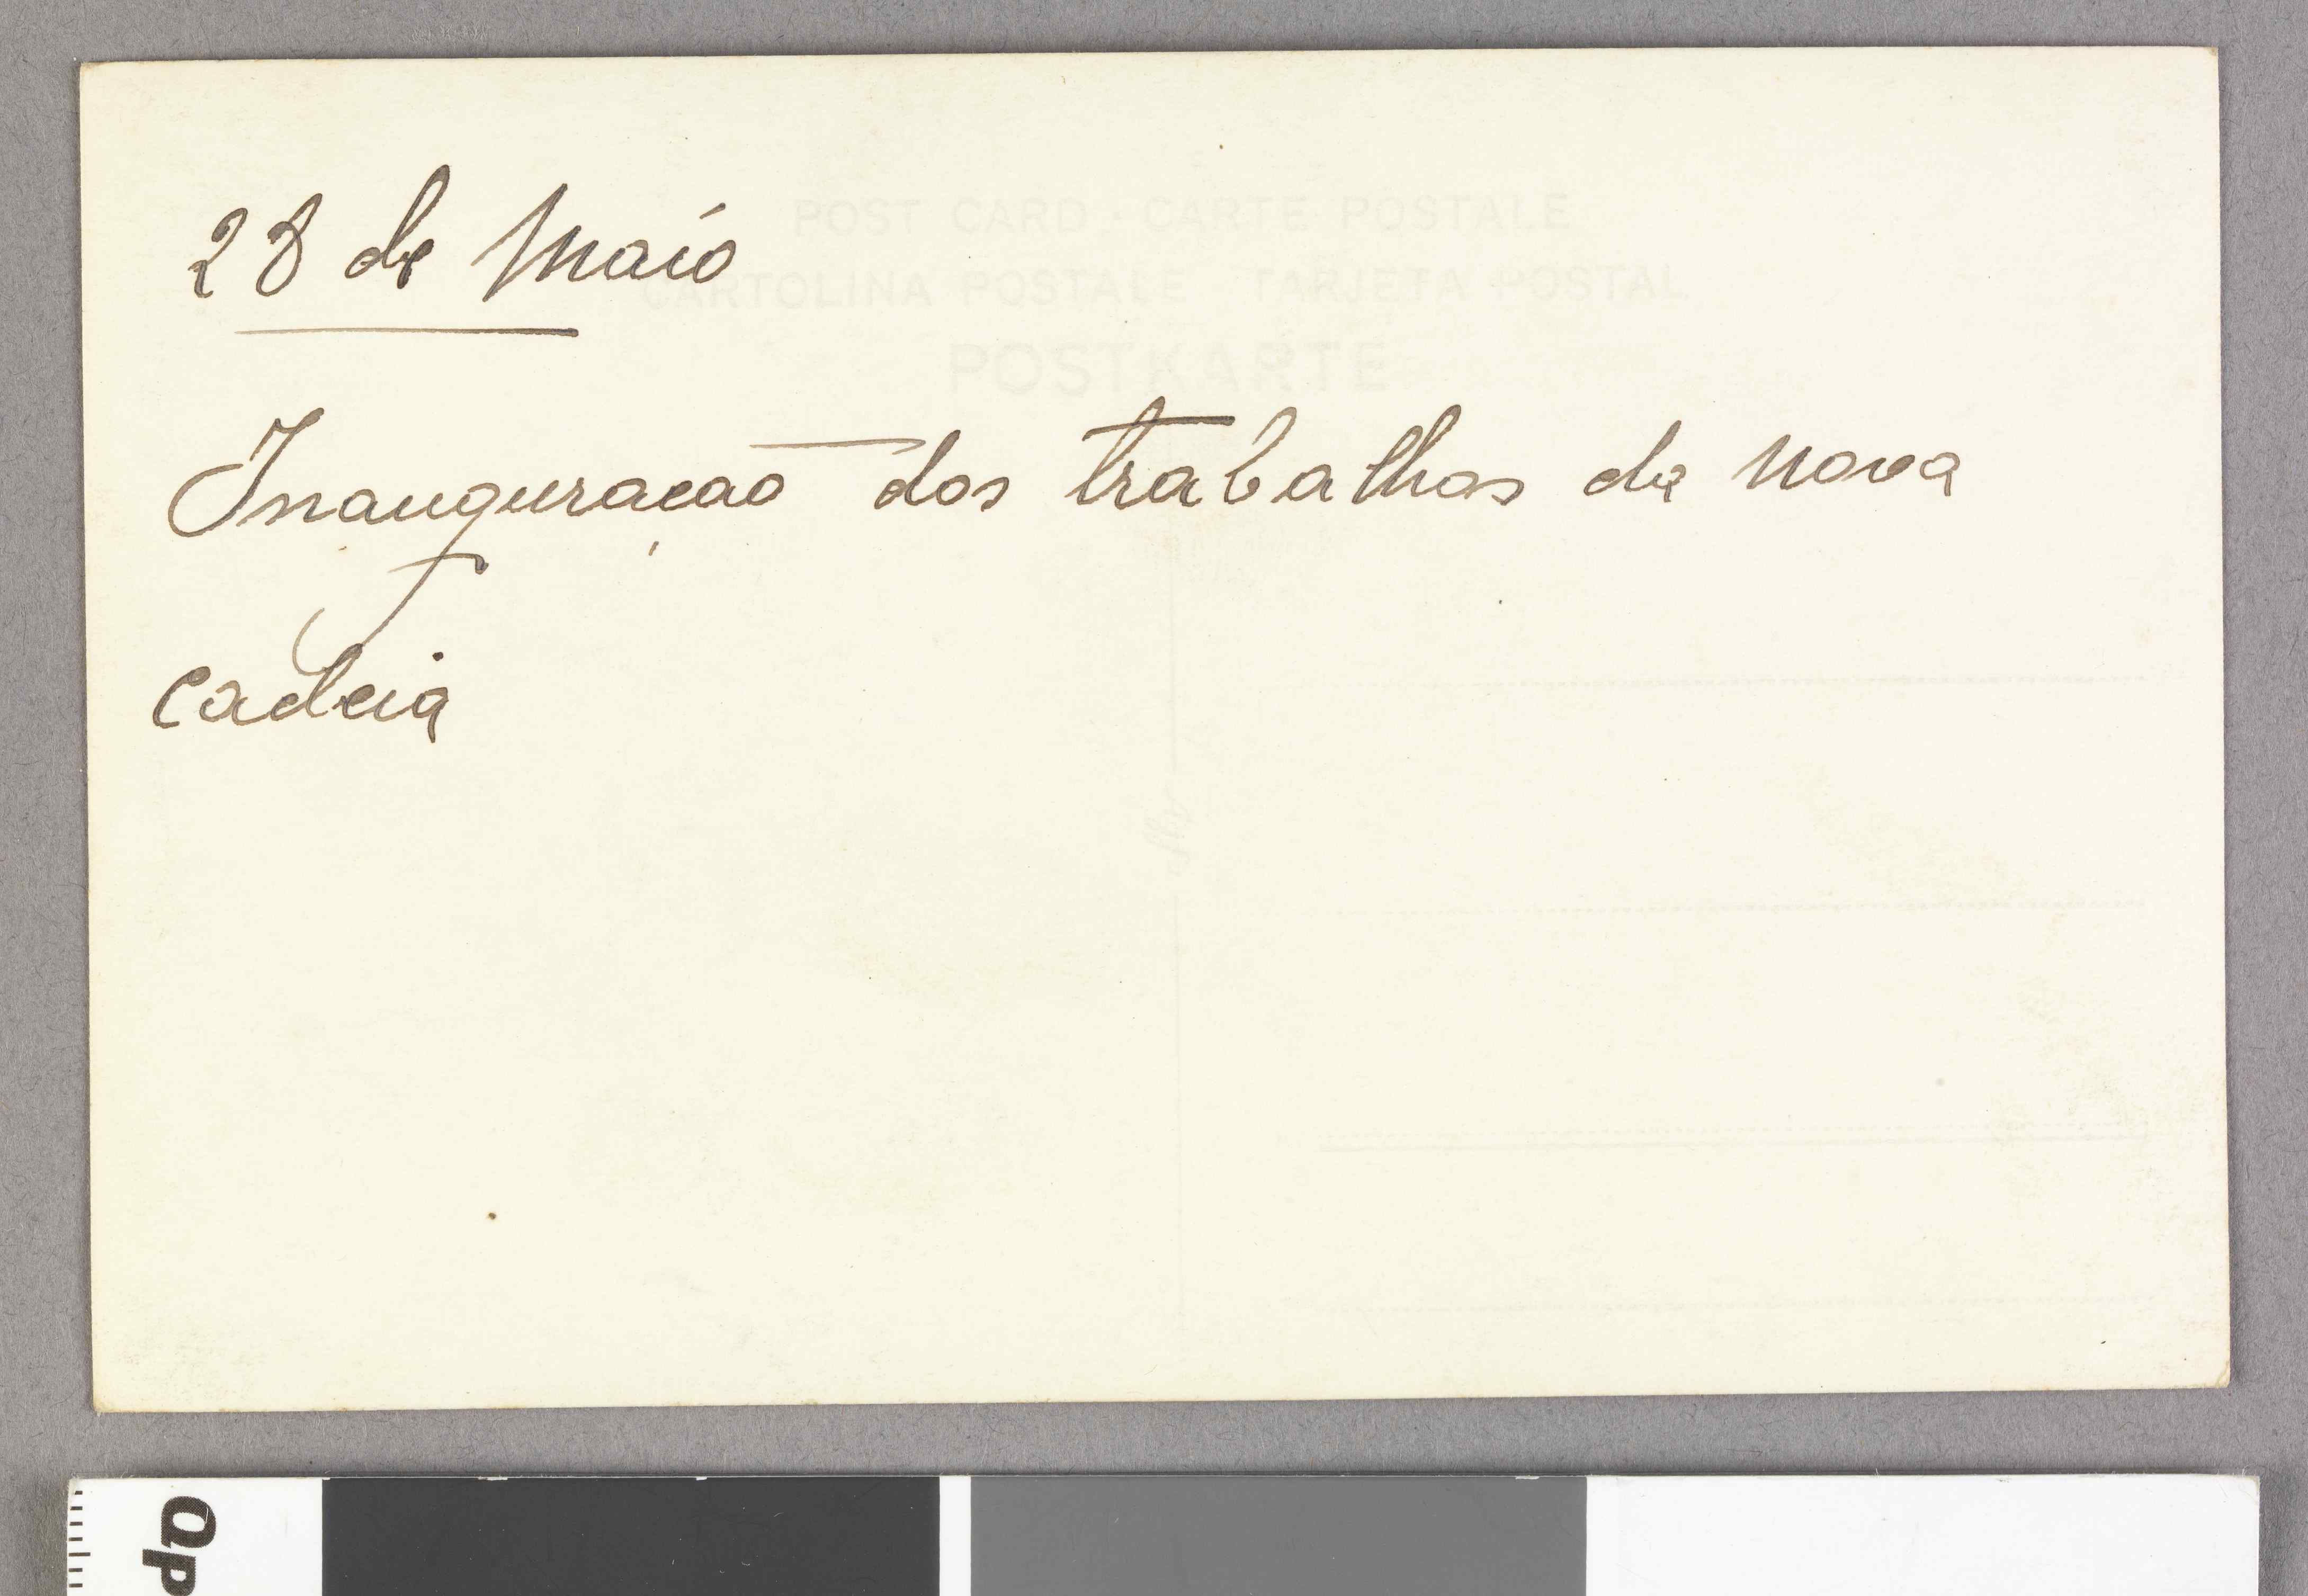 28 de Maio
POST CARD CARTE POSTALE
CARTOLINA POSTALE TARJETA POSTAL
POSTKARTE
Inauguração dos trabalhos da nova
cadeia
Qp